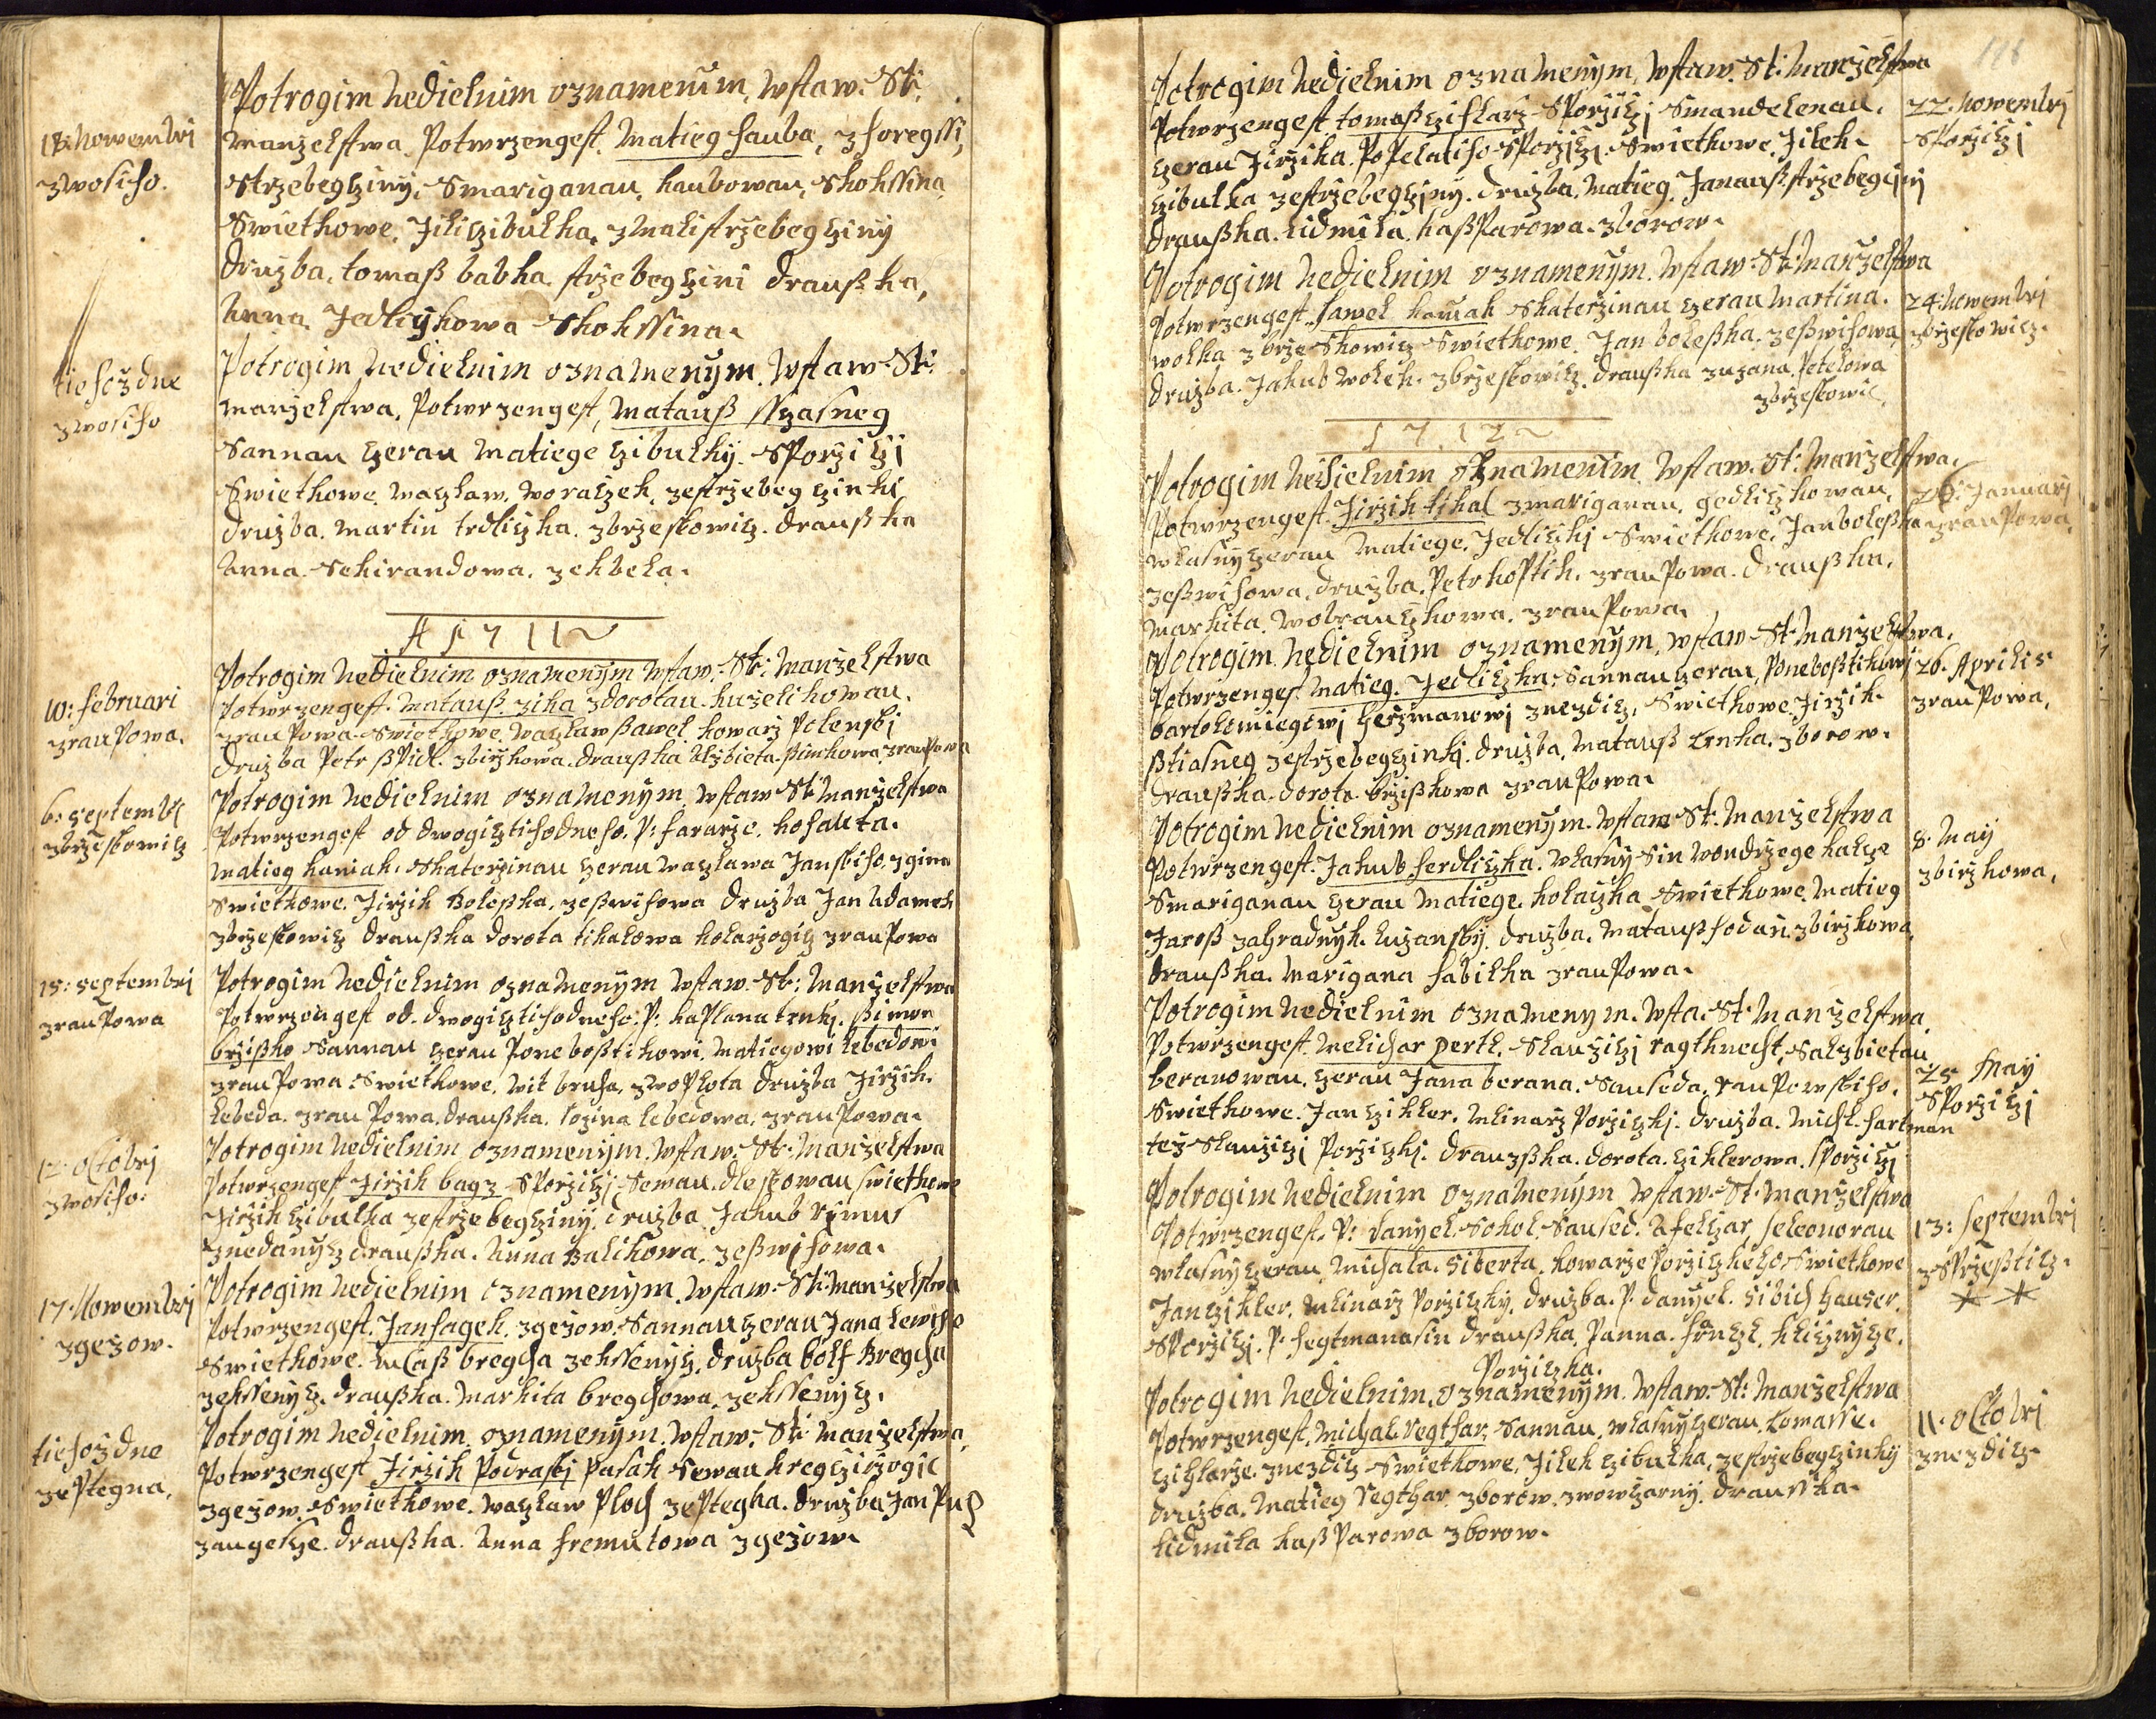 18: Nowembri
zwosiho.
Potrogim Nedielnim oznamenim, wstaw: St:
Manzelstwa. Potwrzengest. Matieg hauba, z horegssi,
strzebegcziny, Smariganau, haubowau, skokssina
Swietkowe, Jilicibulka, z mali strzebegcziny
druzba. tomaß babka. strzebegczini draußka,
Anna. Jedliczkowa skokssina.
tiehozdne
zwosiho
Potrogim Nedielnim oznamenym. wstaw: St:
manzelstwa, Potwrzengest, Matauß sstiasneg
Sannau czerau Matiege czibulky. sPorziczi
Swietkowe waczlaw. woraczek, zestrzebegczinki
druzba. Martin trdliczka. zbrzeskowicz. draußka
Anna. Sekirandowa. zekbela.
A 1711
10: februari
zrauPowa.
Potrogim Nedielnim oznamenym wstaw: St: Manzelstwa
Potwrzengest. Matauß. zika zdorotau. kuzelikowau.
zrauPowa. Swietkowe. waczlaw ßawel kowarz Polenski
druzba Petr ßPidl. zbirzkowa. draußka Alzbieta. ßimkowa zrauPowa
6: septembri
zbrzeskowicz
Potrogim Nedielnim oznamenym. wstaw St: Manzelstwa
Potwrzengest od dwogicztihodneho. P: fararze. kohauta.
Matieg kaniak. skaterzinau czerau waczlawa Janskiho zgina
Swietkowe. Jirzik Boleßka, zeßwihowa druzba Jan Adamek
zbrzeskowicz draußka dorota tikalowa kolarzogicz zrauPowa
15: septembri
zrauPowa
Potrogim Nedielnim oznamenym wstaw: St: Manzelstwa
Potwrzengest od. dwogicztihodneho. P: kaPlana trnki. ßimon
brzißko Sannau czerau Pone bosstikowi. Matiegowi Lebedowi
zrauPowa Swietkowe. wit bruha, zwoPlota druzba Jirzik.
Lebeda. zrauPowa, draußka. rozina Lebedowa, zrauPowa.
12: octobri
zwosiho:
Potrogim Nedielnim oznamenym. wstaw: St: Manzelstwa
Potwrzengest Jirzik bagz sPorziczi Sewau. dleskowau swietkowe
Jirzik czibulka zestrzebegcziny. druzba Jakub rimus
znedanycz draußka. Anna Balikowa. zeßwihowa.
17. Nowembri
zgezow.
Potrogim Nedielnim oznamenym. wstaw: St: Manzelstwa
Potwrzengest. Jan hagek. zgezow. Sannau czerau Jana Lewiho
Swietkowe. lucaß bregcha zekssenycz, druzba bolf Bregcha
zekssenycz. draußka. Markita bregchowa. zekssenycz.
tiehozdne
zePtegna,
Potrogim Nedielnim. oznamenym. wstaw: St: Manzelstwa,
Potwrzengest Jirzik Podraski Pasak Sewau kregczirzogic
zgezow. Swietkowe. waczlaw Ploch zePtegha. druzba Jan Puch
zaugelcze. draußka. Anna fremutowa zgezow.
116
Potrogim Nedielnim oznamenym, wstaw: St: Manzelstwa
Potwrzengest. tomaß czihlarz sPorziczi Smandelenau.
czerau Jirzika. PoPelatiho sPorziczi. Swietkowe. Jilek.
czibulka zestrzebegcziny. druzba. Matieg. Janauß strzebegciny
draußka. lidmila. kaßParowa. zborow.
22. Nowembri
sPorziczi
Potrogim Nedielnim oznamenym. wstaw: St: Manzelstwa
Potwrzengest. Pawel kaniak skaterzinau czerau Martina.
wolka zbrzeskowicz Swietkowe. Jan boleßka. zeßwihowa
druzba. Jakub wolek. zbrzeskowicz. draußka zuzana. Petelowa
zbrzeskowic.
24: Nowembri
zbrzeskowicz.
1712
Potrogim Nedielnim oznamenim. wstaw. St: Manzelstwa.
Potwrzengest. Jirzik tikal zmariganau. gedliczkowau,
wlasny czerau Matiege. Jedliczki Swietkowe. Jan boleßka
zeßwihowa, druzba. Petr koPtik. zrauPowa. draußka.
Markita. wobrauczkowa. zrauPowa.
26: Januari
zrauPowa.
Potrogim. Nedielnim oznamenym, wstaw: St: Manzelstwa.
Potwrzengest Matieg. Jedliczka. Sannau czerau, Ponebosstikowi
bartolomiegowi herzmanowi znezdicz. Swietkowe. Jirzik.
ßtiasneg zestrzebegczinki. druzba. Matauß Lenka. zborow.
draußka. dorota. brzißkowa zrauPowa.
26. Aprilis
zrauPowa,
Potrogim Nedielnim oznamenym. wstaw St: Manzelstwa
Potwrzengest. Jakub ferdliczka. wlasny Sin wondrzege kalcze
Smariganau czerau Matiege. kolaczka Swietkowe. Matieg
Jaroß zahradnyk. Luzansky. druzba. Matauß hodan. zbirzkowa.
draußka. Marigana habilka zrauPowa.
8. May
zbirzkowa,
Potrogim Nedielnim oznamenym. wsta. St. Manzelstwa,
Potwrzengest. Melichar Pertl. Slauziczi ragtknecht. Salzbietau
beranowau. czerau Jana berana. Sauseda, rauPowskiho.
Swietkowe. Jan czikler. Mlinarz Porziczki. druzba. Michl. hartman
tez Slauziczi Porziczki. draußka. dorota. cziklerowa. sPorziczi
25 May
sPorziczi
Potrogim Nedielnim oznamenym wstaw. St: Manzelstwa
Potwrzengest. P: danyel. Sokol. Saused. A felczar, seleonorau
wlasny czerau, Michala. Siberta. kowarze Porziczkeho. Swietkowe
Jan czikler. Mlinarz Porziczky. druzba. P. danyel. Sibich hauser.
sPorziczi. P: hegtmana sin draußka, Panna. klicznycze.
Porziczka.
13: septembri
zSPrzeßticz.
* *
Potrogim Nedielnim. oznamenym. wstaw: St: Manzelstwa
Potwrzengest. Michal. Regthar. Sannau. wlasny czerau. tomasse.
czihlarze. znezdicz Swietkowe. Jilek czibulka, zestrzebegczinky
druzba. Matieg Regthar. zborow. zwowczarny. draußka.
lidmila kaßParowa zborow.
11. octobri
znezdicz